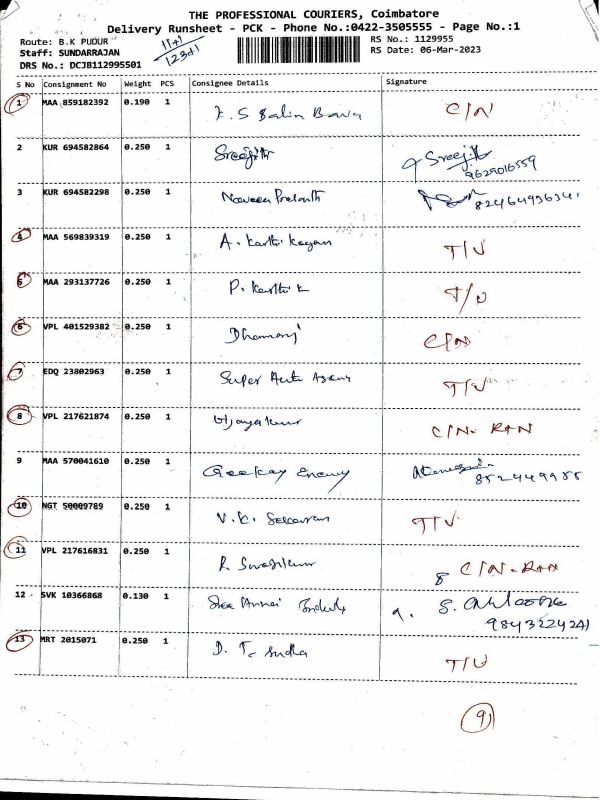 THE PROFESSIONAL COURIERS, Coimbatore
Delivery Runsheet - PCK - Phone No.:0422-3505555 - Page No.:1
Route: B.K PUDUR
RS No.: 1129955
Staff: SUNDARRAJAN
RS Date: 06-Mar-2023
DRS No.: DCJB112995501
S No Consignment No Weight PCS Consignee Details Signature
1 MAA 859182392 0.190 1 C/N
2 KUR 694582864 0.250 1 Sreejith Sreejith
9629016559
3 KUR 694582298 0.250 1 Naveen Prasanth
4 MAA 569839319 0.250 1 A. Karthikeyan T/U
5 MAA 293137726 0.250 1 P. Karthik T/U
6 VPL 401529382 0.250 1 Dhamanj C/N
7 EDQ 23802963 0.250 1 Super Auto T/U
8 VPL 217621874 0.250 1 Vijayakumar C/N. RTN
9 MAA 570041610 0.250 1 Geekay Energy
10 NGT 50009789 0.250 1 V.K. T/U
11 VPL 217616831 0.250 1 C/N. RTN
12 SVK 10366868 0.130 1 Sree Annai
9843224241
13 MRT 2015071 0.250 1 Sudha T/U
9